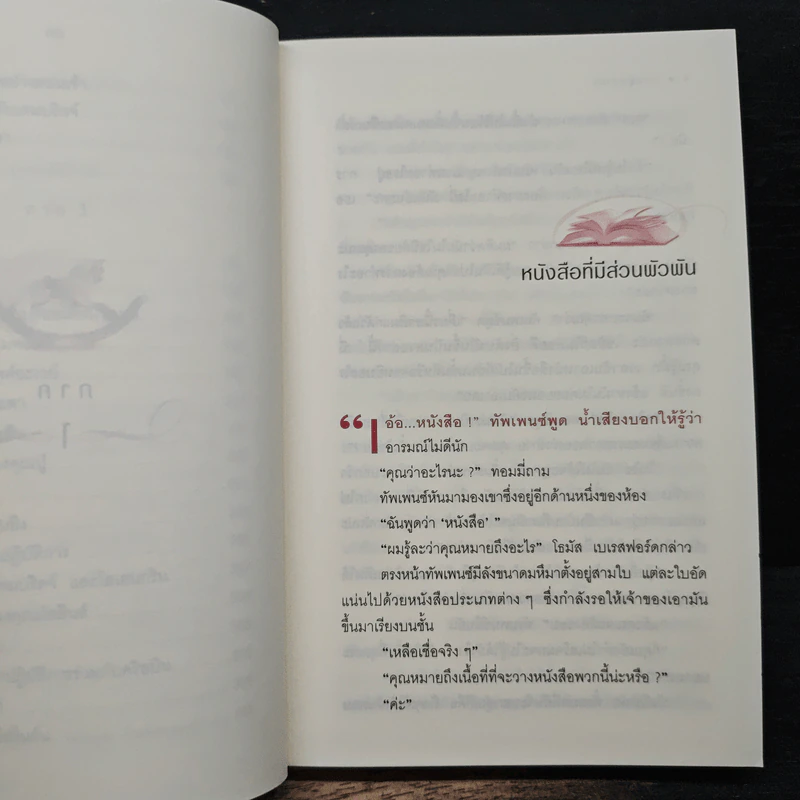 ภาค
1
หนังสือที่มีส่วนพัวพัน
“เอ้อ...หนังสือ !” ทัพเพนซ์พูด น้ำเสียงบอกให้รู้ว่า
อารมณ์ไม่ดีนัก
“คุณว่าอะไรนะ ?” ทอมมี่ถาม
ทัพเพนซ์หันมามองเขาซึ่งอยู่อีกด้านหนึ่งของห้อง
“ฉันพูดว่า ‘หนังสือ’ ”
“ผมรู้ละว่าคุณหมายถึงอะไร” โธมัส เบเรสฟอร์ดกล่าว
ตรงหน้าทัพเพนซ์มีลังขนาดมหึมาตั้งอยู่สามใบ แต่ละใบอัด
แน่นไปด้วยหนังสือประเภทต่าง ๆ ซึ่งกำลังรอให้เจ้าของเอามัน
ขึ้นมาเรียงบนชั้น
“เหลือเชื่อจริง ๆ”
“คุณหมายถึงเนื้อที่ที่จะวางหนังสือพวกนี้น่ะหรือ ?”
“ค่ะ”